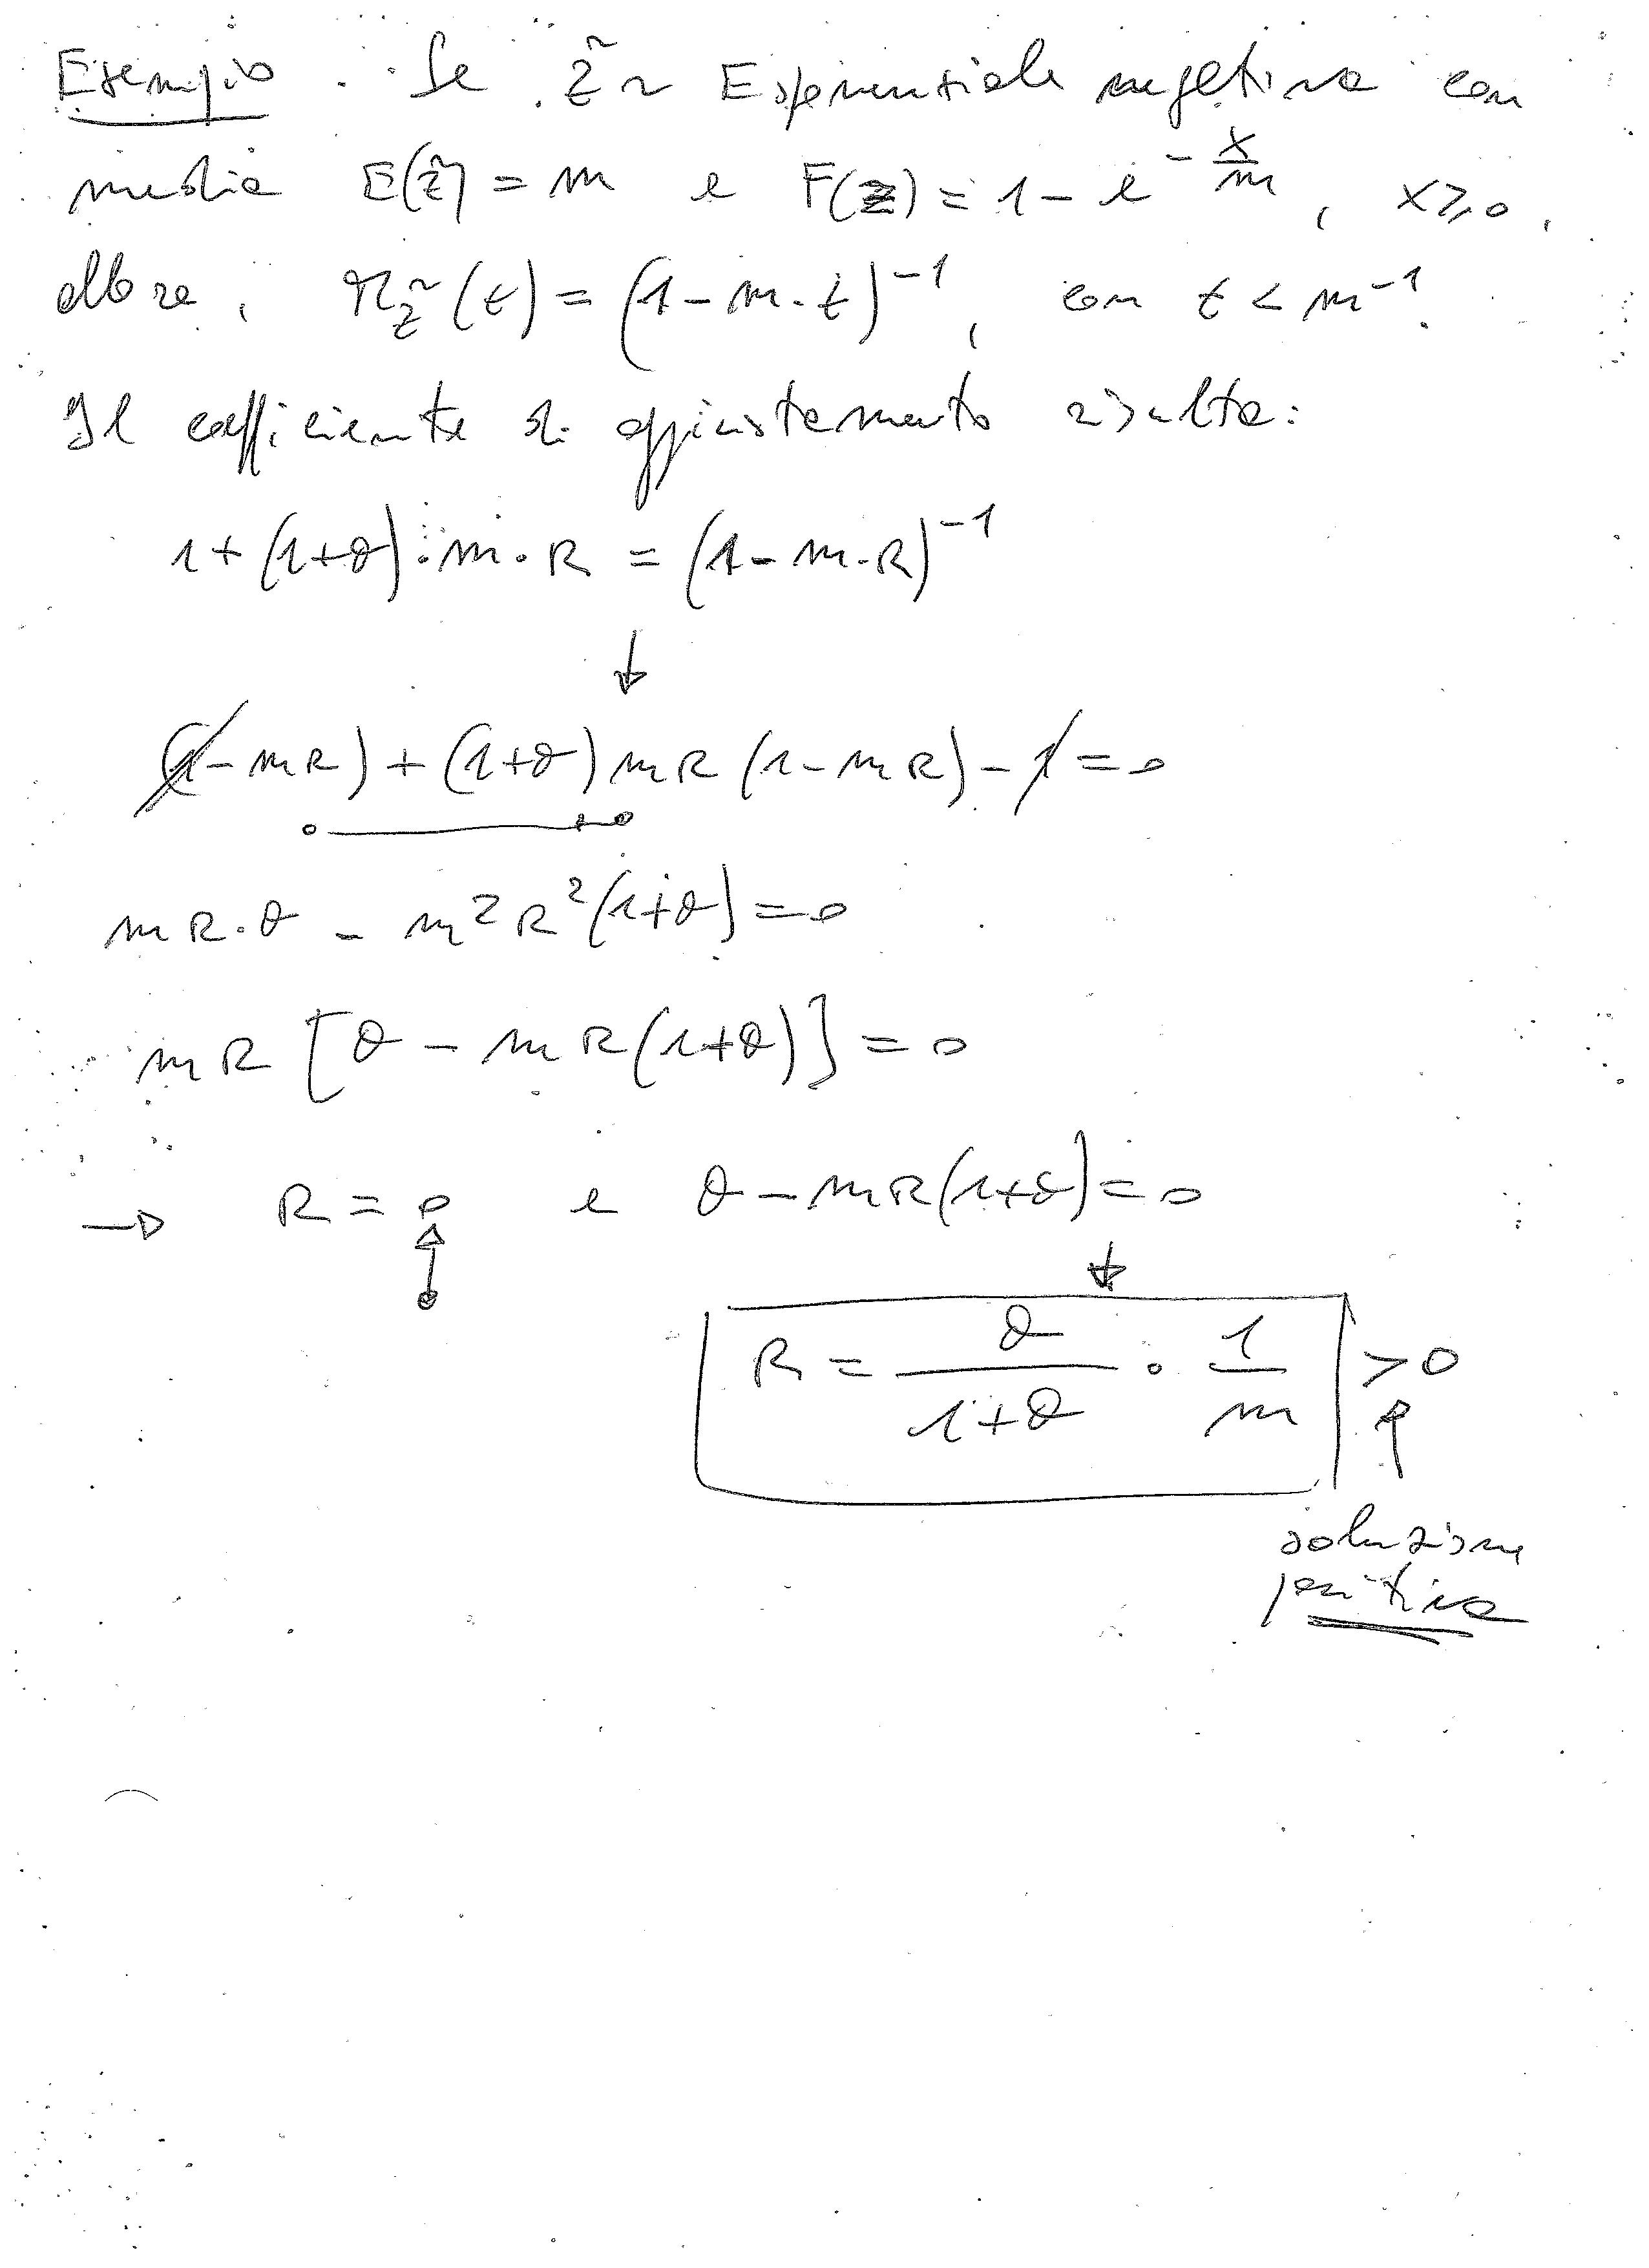 Esempio. Se z̃ ~ Esponenziale negativa con
media E(z̃) = m e F(z) = 1 - e^{-x/m}, x ≥ 0,
allora, M_z̃(t) = (1 - m·t)^{-1}, con t < m^{-1}.
Il coefficiente di aggiustamento risulta:
1 + (1+θ)·m·R = (1 - m·R)^{-1}
↓
(1 - mR) + (1+θ) mR (1 - mR) - 1 = 0
mR·θ - m²R²(1+θ) = 0
mR [θ - mR(1+θ)] = 0
→ R = 0 e θ - mR(1+θ) = 0
↓
R = θ/(1+θ) · 1/m > 0
soluzione
positiva